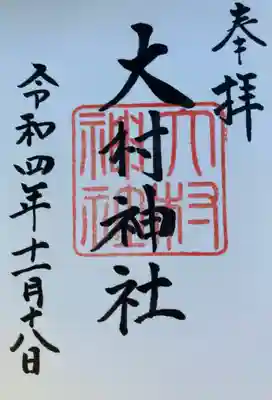 奉拝
大村神社
大村
神社
令和四年十一月十八日